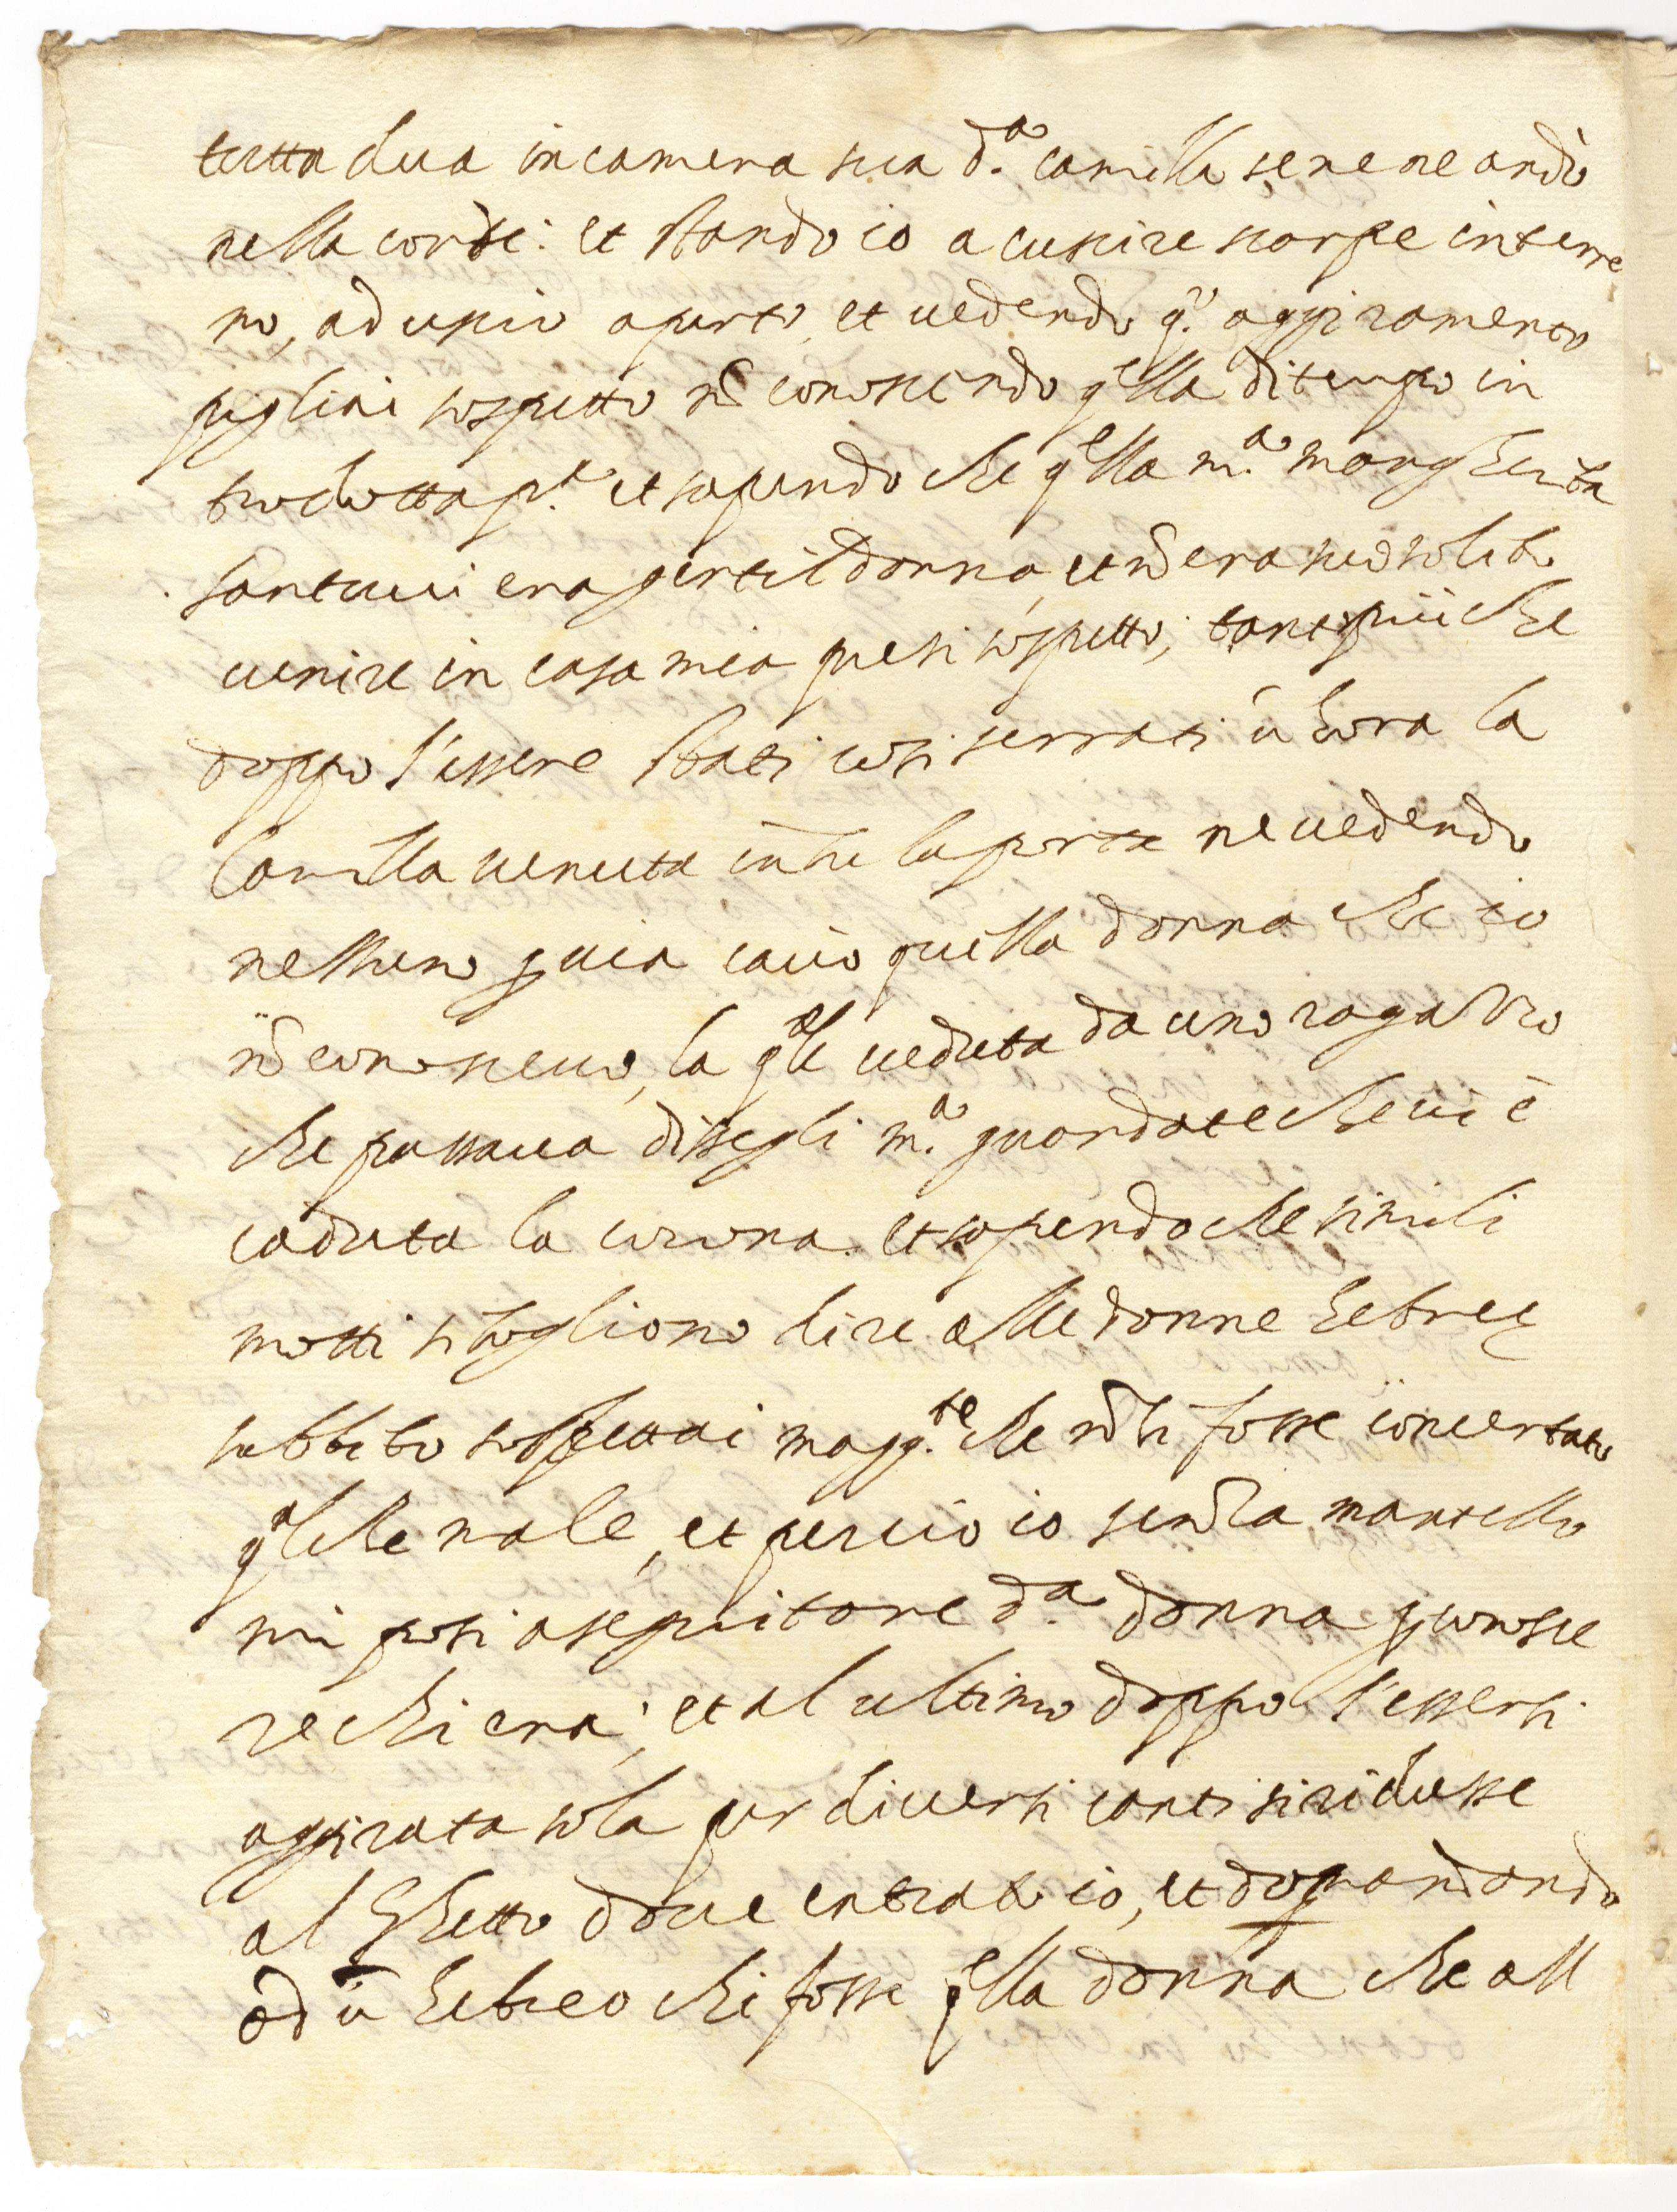 tutta dua in camera sua d.ª Camilla se ne ne andò
nella corte: et stando io a cusire scarpe in terre
no, ad uscio aperto, et uedendo q.º aggiramento
pigliai sospetto nō conoscendo qlla di tempo in
trodotta p.ª et sapendo che qlla m.ª Margherita
Santucci era gentildonna, et nō era suo solito
uenire in casa mia presi sospetto, tanto più che
doppo l'essere stati cosi serrati ū hora la
Camilla uenuta in su la porta ne uedendo
nessuno p uia cauò quella donna che io
nō conosceuo, la qle ueduta da uno ragazzo
che passaua dissegli m.ª guardate che ui è
caduta la corona. et sapendo che simili
motti si sogliono dire alle donne hebree
subbito sospettai magg.te che nō si fosse concertato
qlche male, et perciò io senza mantello
mi posi a seguitare d.ª donna p conosce
re chi era; et al ultimo doppo l'essersi
aggirata sola per diuersi canti si ridusse
al Ghetto doue entrato io, et domandando
ad ū hebreo chi fosse qlla donna che all